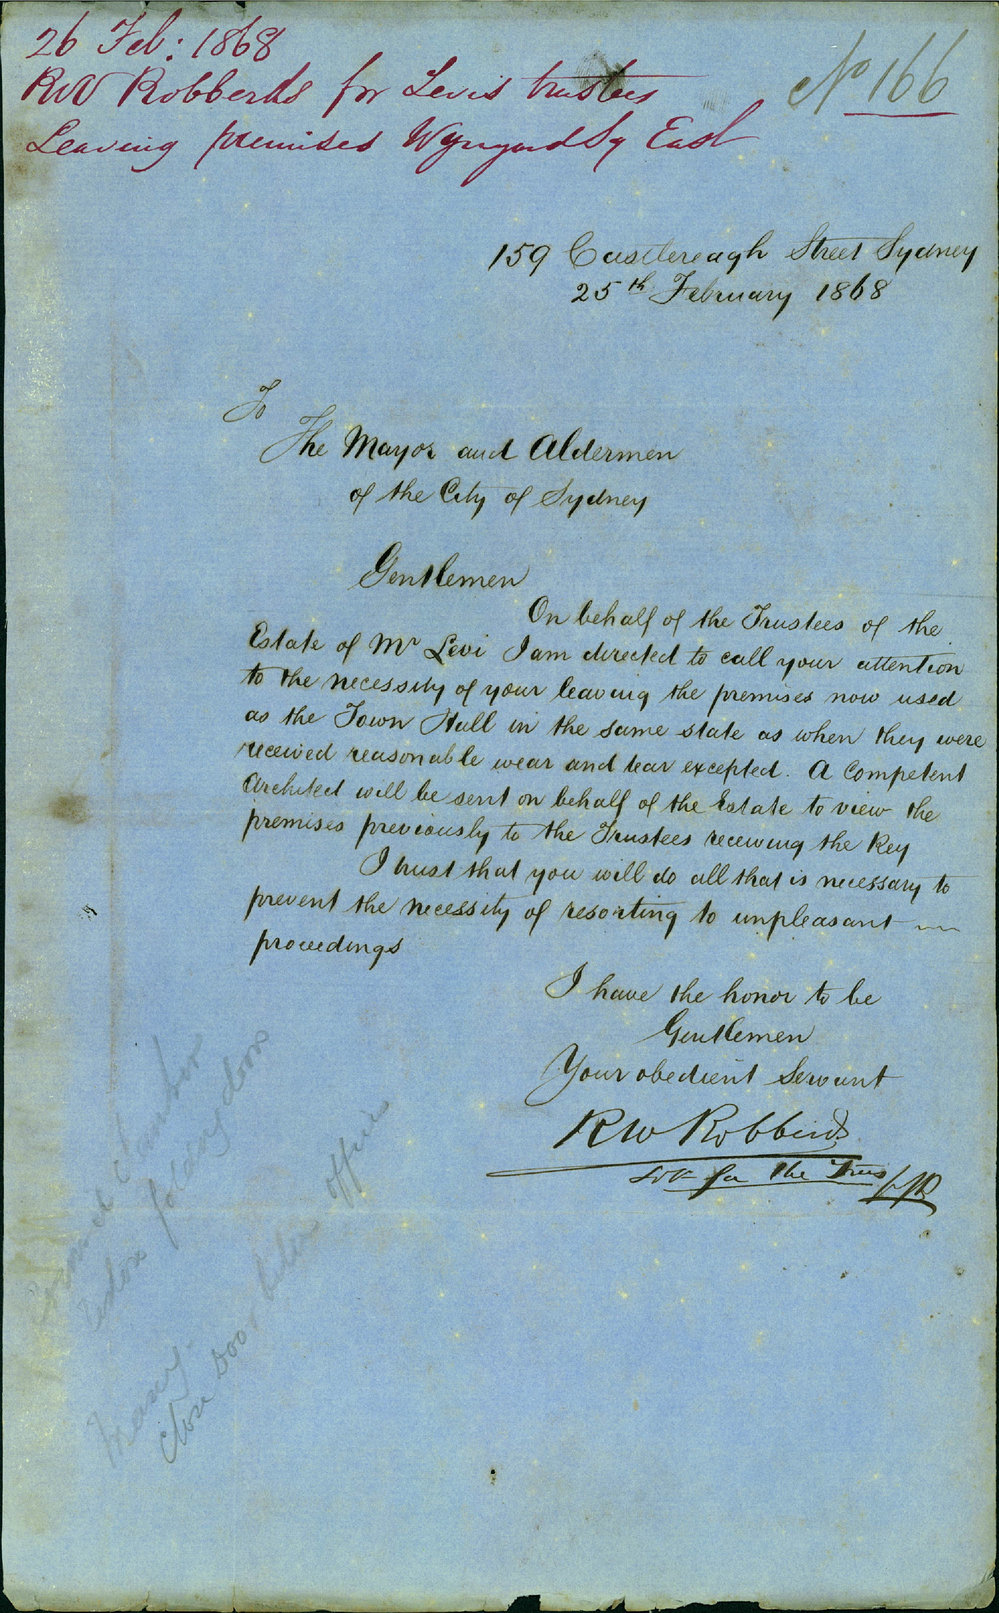 26 Feb: 1868
RW Robberds for Levis trustees
Leaving premises Wynyard Sq East
No 166
159 Castlereagh Street Sydney
25th February 1868
To
The Mayor and Aldermen
of the City of Sydney
Gentlemen
On behalf of the Trustees of the
Estate of Mr Levi I am directed to call your attention
to the necessity of your leaving the premises now used
as the Town Hall in the same state as when they were
received reasonable wear and tear excepted. A Competent
Architect will be sent on behalf of the Estate to view the
premises previously to the Trustees receiving the Key
I trust that you will do all that is necessary to
prevent the necessity of resorting to unpleasant
proceedings
I have the honor to be
Gentlemen
Your obedient Servant
RW Robberds
for the Trus
folding door
close door
offices